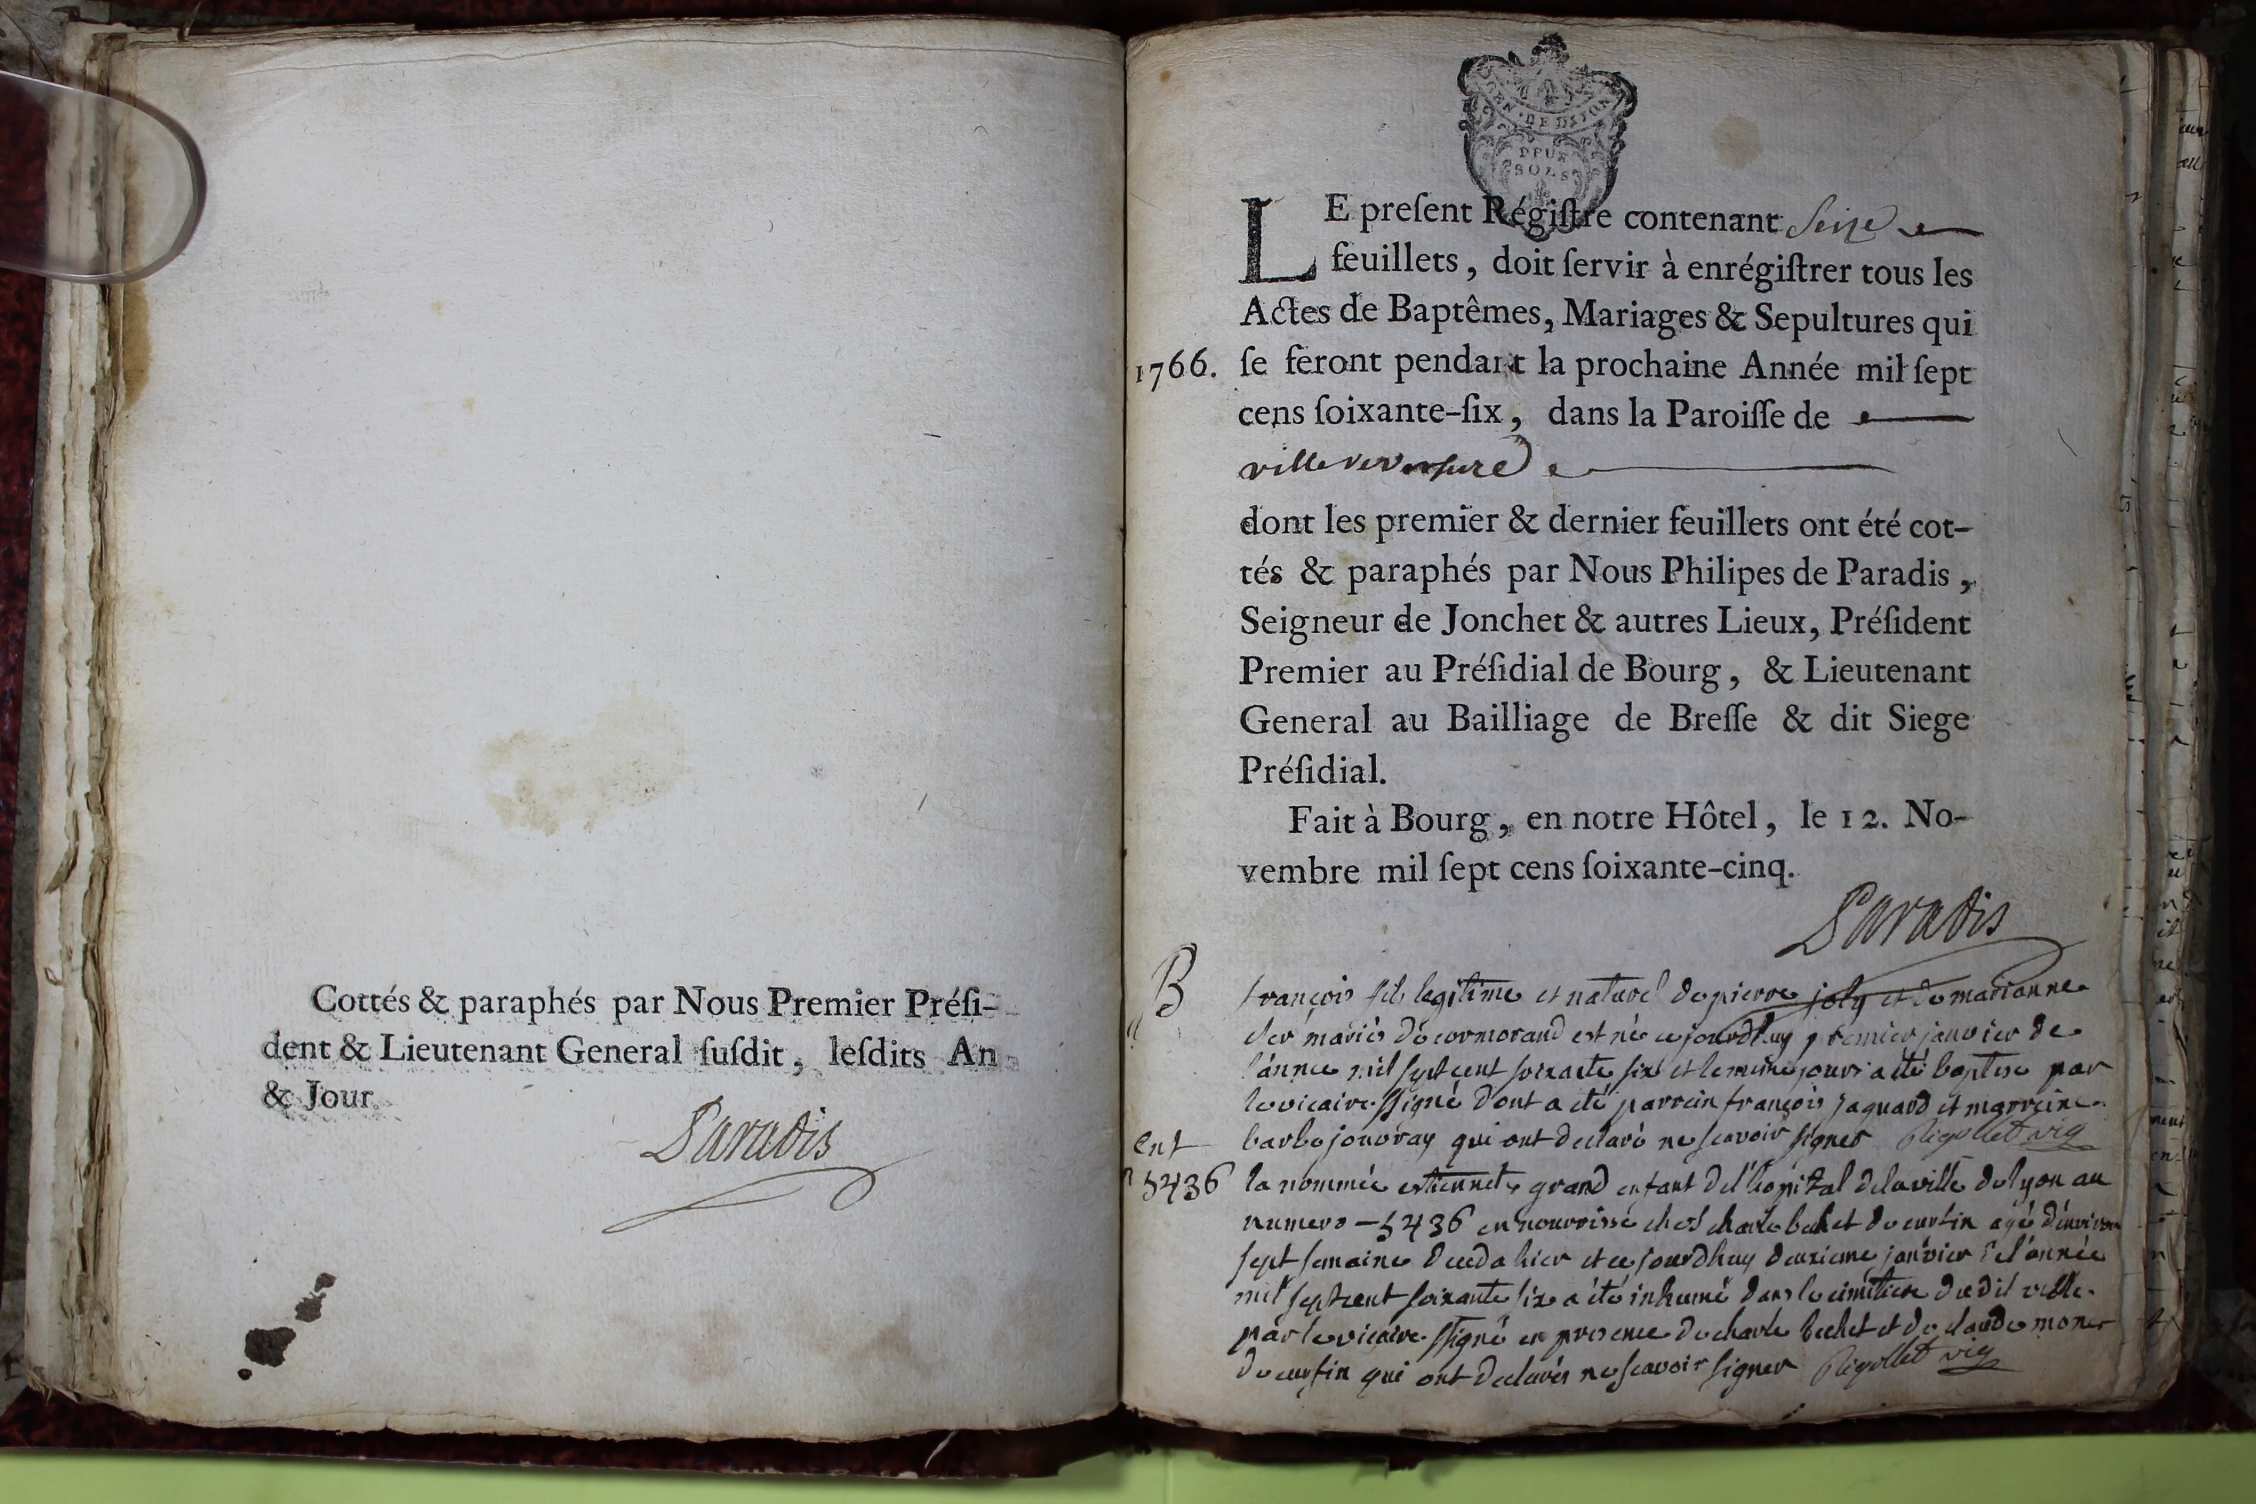 Cottés & paraphés par Nous Premier Préſi-
dent & Lieutenant General ſuſdit, leſdits An
& Jour.
Paradis
GEN. DE DIJON
DEUX
SOLS
LE preſent Régiſtre contenant Seize
feuillets, doit ſervir à enrégiſtrer tous les
Actes de Baptêmes, Mariages & Sepultures qui
1766. ſe feront pendant la prochaine Année mil ſept
cens ſoixante-ſix, dans la Paroiſſe de
villereversure
dont les premier & dernier feuillets ont été cot-
tés & paraphés par Nous Philipes de Paradis,
Seigneur de Jonchet & autres Lieux, Préſident
Premier au Préſidial de Bourg, & Lieutenant
General au Bailliage de Breſſe & dit Siege
Préſidial.
Fait à Bourg, en notre Hôtel, le 12. No-
vembre mil ſept cens ſoixante-cinq.
Paradis
B françois fils legitime et naturel de pierre joly et de marianne
mariés de cormorand est né ce jourdhuy premier janvier de
l'année mil sept cent soixante six et le meme jour a été baptise par
le vicaire ssigné dont a été parrein françois jaquard et marreine
barbe jouvray qui ont declaré ne scavoir signer Rigollet vic
ent
5436 la nommée estiennete grand enfant de l'hopital de la ville de lyon au
numero - 5436 en nourisse chés charle bechet de curfin agé d'environ
sept semaine deceda hier et ce jourdhuy deuxieme janvier de l'année
mil sept cent soixante six a été inhumé dans le cimetiere dudit ville
par le vicaire ssigné en presence de charle bechet et de claude
de curfin qui ont declarés ne scavoir signer Rigollet vic